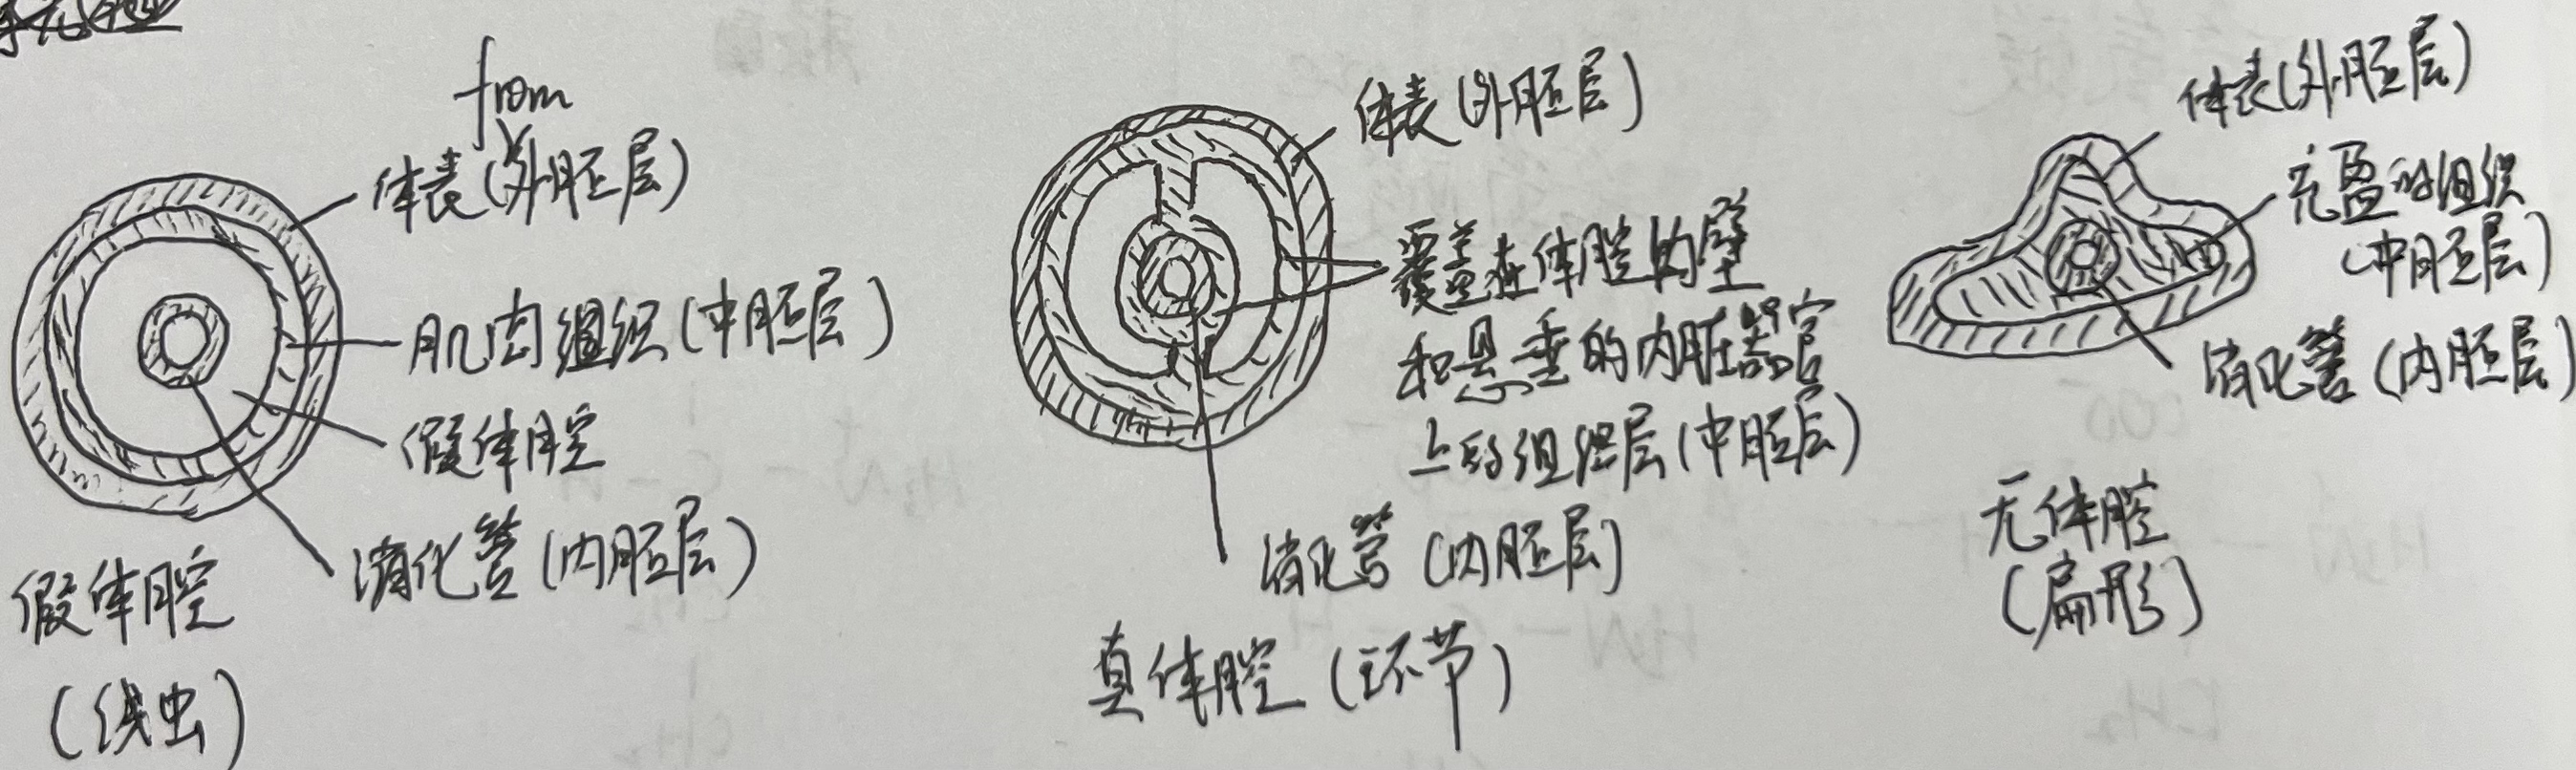 from
体表(外胚层)
肌肉组织(中胚层)
假体腔
消化管(内胚层)
假体腔
(线虫)
体表(外胚层)
覆盖在体腔内壁
和悬垂的内脏器官
上的组织层(中胚层)
消化管(内胚层)
真体腔(环节)
体表(外胚层)
充盈的组织
(中胚层)
消化管(内胚层)
无体腔
(扁形)